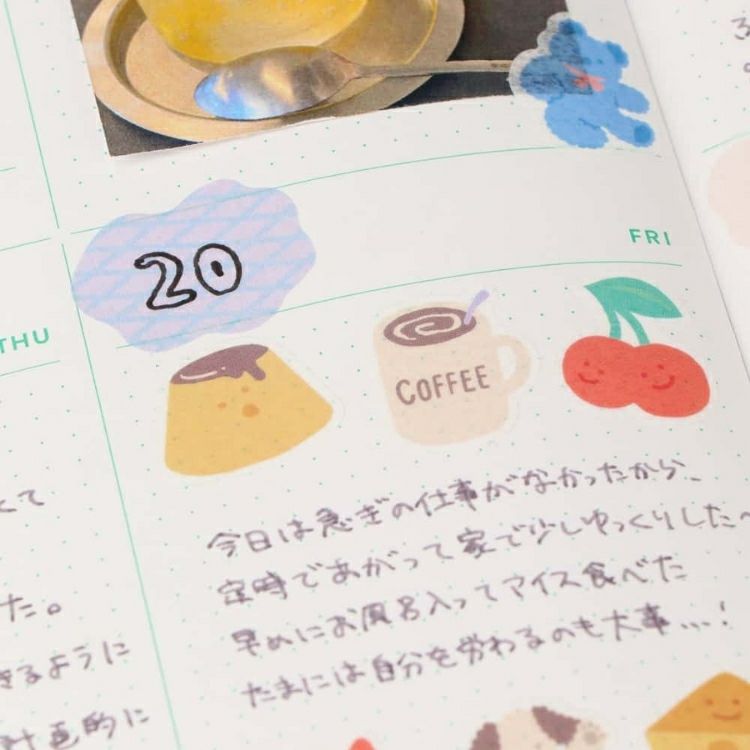 20
FRI
COFFEE
今日は急ぎの仕事がなかったから、
定時であがって家で少しゆっくりした〜
早めにお風呂入ってアイス食べた
たまには自分を労わるのも大事…!
THU
くて
た。
きるように
計画的に
る